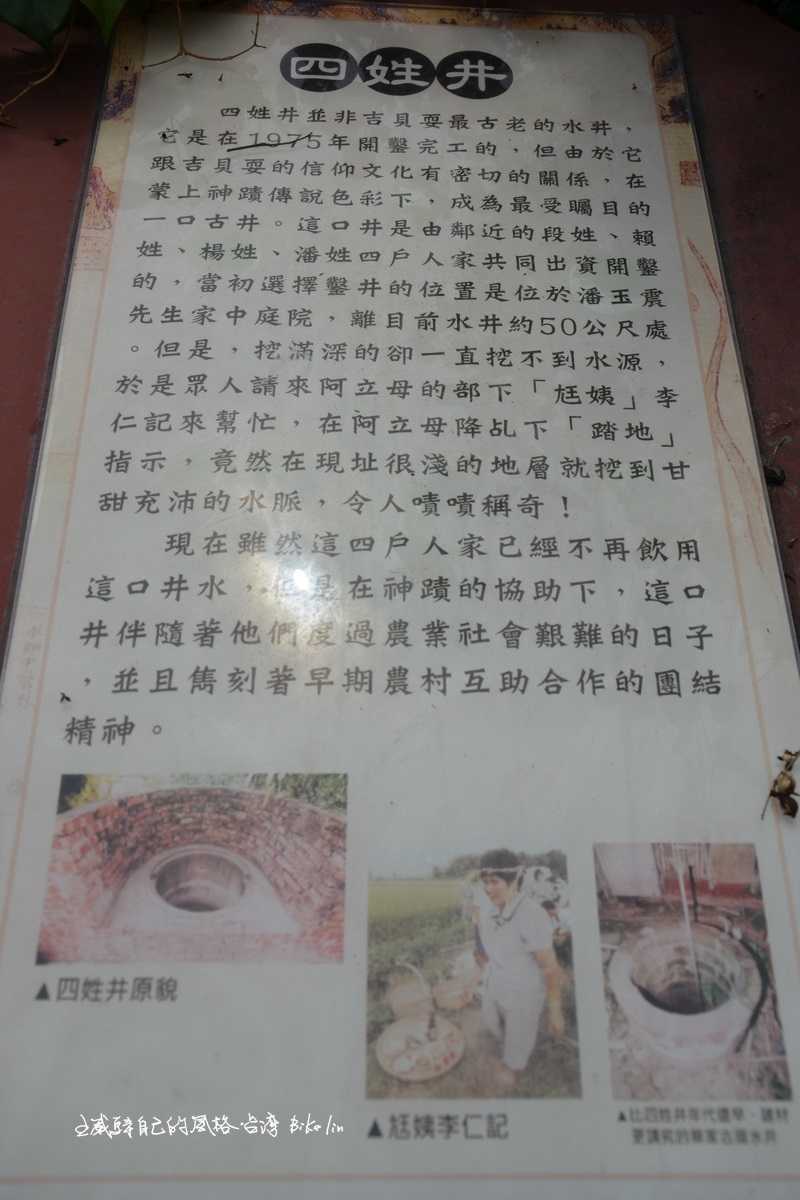 四姓井
四姓井並非吉貝耍最古老的水井，
它是在1975年開鑿完工的，但由於它
跟吉貝耍的信仰文化有密切的關係，在
蒙上神蹟傳說色彩下，成為最受矚目的
一口古井。這口井是由鄰近的段姓、賴
姓、楊姓、潘姓四戶人家共同出資開鑿
的，當初選擇鑿井的位置是位於潘玉震
先生家中庭院，離目前水井約50公尺處
。但是，挖滿深的卻一直挖不到水源，
於是眾人請來阿立母的部下「尪姨」李
仁記來幫忙，在阿立母降乩下「踏地」
指示，竟然在現址很淺的地層就挖到甘
甜充沛的水脈，令人嘖嘖稱奇！
現在雖然這四戶人家已經不再飲用
這口井水，但是在神蹟的協助下，這口
井伴隨著他們度過農業社會艱難的日子
，並且雋刻著早期農村互助合作的團結
精神。
▲四姓井原貌
▲尪姨李仁記
▲比四姓井年代還早、建材
更講究的段家古厝水井
自己的風格.台灣 Biko lin